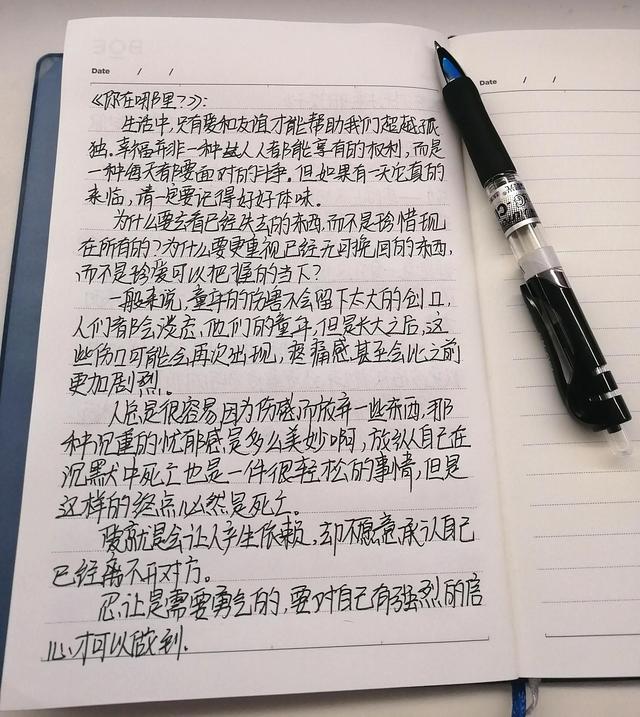 BOE
Date / /
《你在哪里?》:
生活中,只有爱和友谊才能帮助我们超越孤
独。幸福并非一种人人都能享有的权利,而是
一种每天都要面对的斗争。但如果有一天它真的
来临,请一定要记得好好体味。
为什么要去看已经失去的东西,而不是珍惜现
在所有的?为什么要更重视已经无可挽回的东西,
而不是珍爱可以把握的当下?
一般来说,童年的伤害不会留下太大的创口,
人们都会淡忘,他们的童年,但是长大之后,这
些伤口可能会再次出现,疼痛感甚至会比之前
更加剧烈。
人总是很容易因为伤感而放弃一些东西,那
种沉重的忧郁感是多么美妙啊,放纵自己在
沉默中死亡也是一件很轻松的事情,但是
这样的终点必然是死亡。
爱就是会让人产生依赖,却不愿意承认自己
已经离不开对方。
忍让是需要勇气的,要对自己有强烈的信
心才可以做到。
Date / /